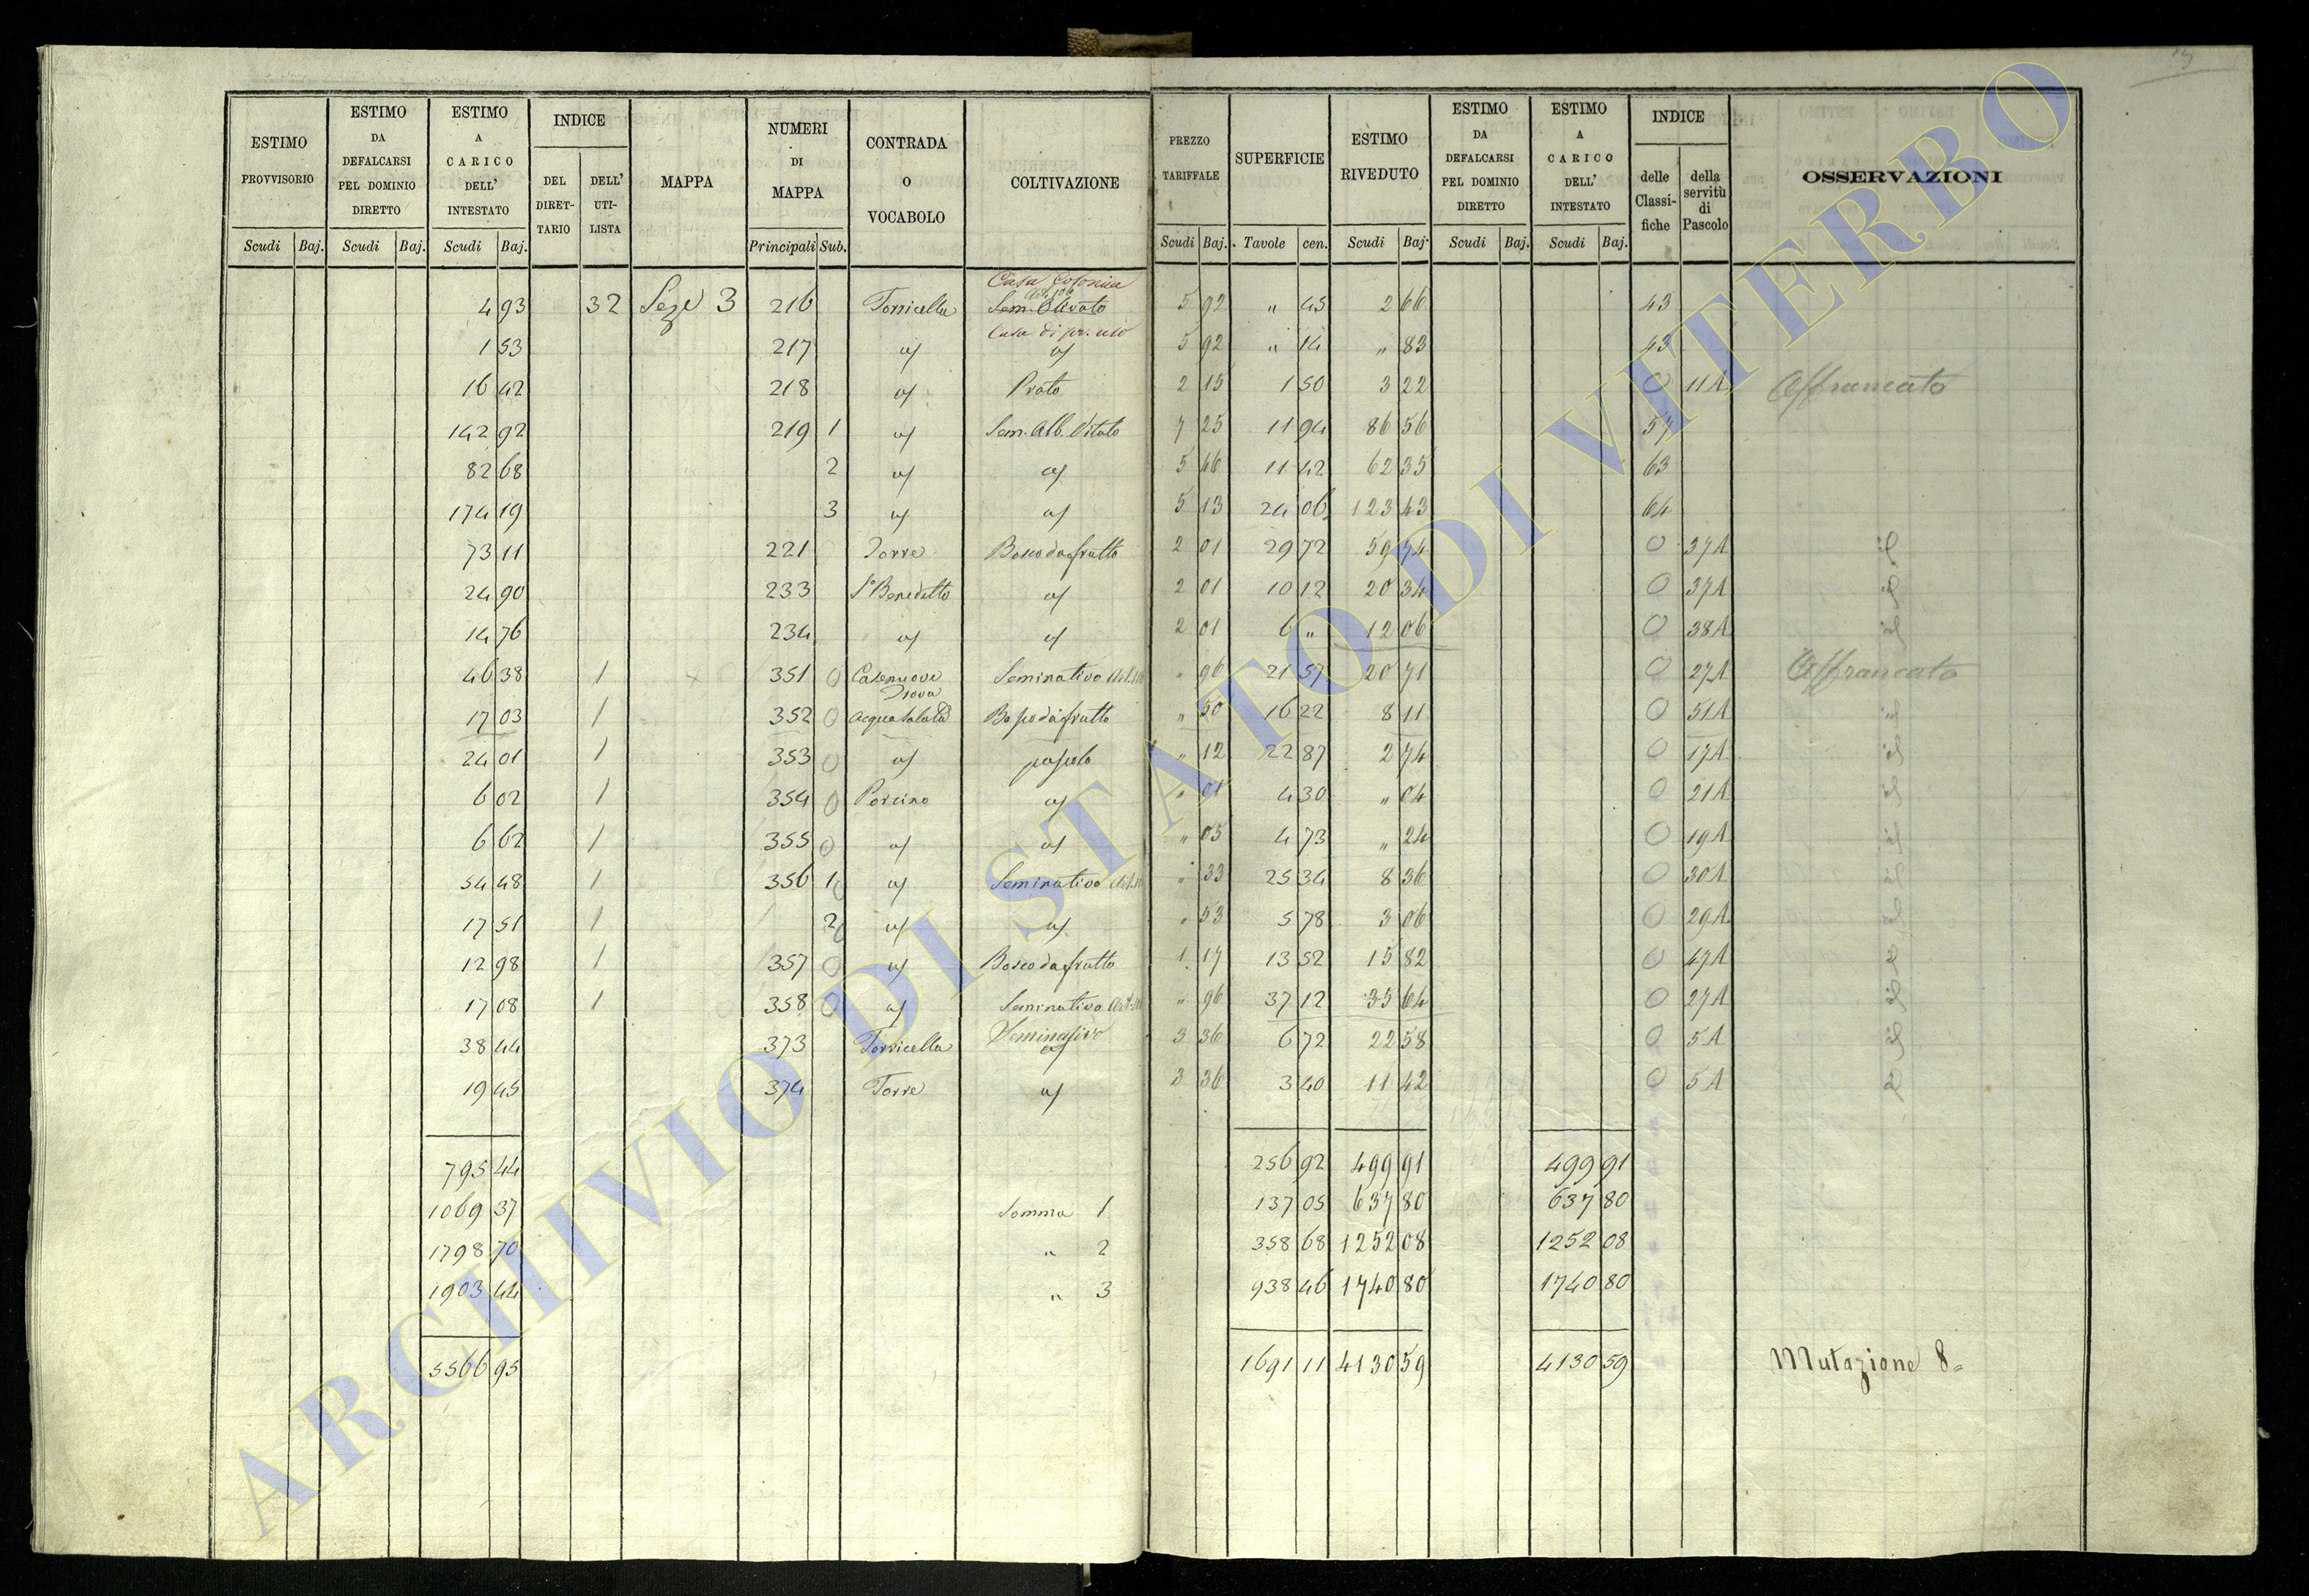 ESTIMO PROVVISORIO | ESTIMO DA DEFALCARSI PEL DOMINIO DIRETTO | ESTIMO A CARICO DELL' INTESTATO | INDICE DEL DIRET-TARIO | DELL' UTI-LISTA | MAPPA | NUMERI DI MAPPA | CONTRADA O VOCABOLO | COLTIVAZIONE | PREZZO TARIFFALE | SUPERFICIE | ESTIMO RIVEDUTO | ESTIMO DA DEFALCARSI PEL DOMINIO DIRETTO | ESTIMO A CARICO DELL' INTESTATO | INDICE delle Classi-fiche | della servitù di Pascolo | OSSERVAZIONI
Scudi Baj. | Scudi Baj. | Scudi Baj. | Principali Sub. | Scudi Baj. | Tavole cen. | Scudi Baj. | Scudi Baj. | Scudi Baj.
Casa Colonica
4 93 32 Seze 3 216 Torricella Sem. Olivato 5 92 " 45 2 66 43
Casa di pr. uso
1 53 217 " " 5 92 " 14 " 83 43
16 42 218 " Prato 2 15 1 50 3 22 0 11A Affrancato
142 92 219 1 " Sem. Alb. Vitato 7 25 11 94 86 56 57
82 68 2 " " 5 46 11 42 62 35 63
174 19 3 " " 5 13 24 06 123 43 64
73 11 221 Torre Bosco da frutto 2 01 29 72 59 74 0 37A id
24 90 233 S. Benedetto " 2 01 10 12 20 34 0 37A id
14 76 234 " " 2 01 6 " 12 06 0 38A id
46 38 1 351 0 Casenuove Seminativo " 96 21 57 20 71 0 27A Affrancato
17 03 1 352 0 Acquasalata Bosco da frutto " 50 16 22 8 11 0 51A id
24 01 1 353 0 " pascolo " 12 22 87 2 74 0 17A id
6 02 1 354 0 Porcino " " 01 4 30 " 04 0 21A id
6 62 1 355 0 " " " 05 4 73 " 24 0 19A id
54 48 1 356 1 0 " Seminativo " 33 25 34 8 36 0 30A id
17 51 1 2 0 " " " 53 5 78 3 06 0 29A id
12 98 1 357 0 " Bosco da frutto 1 17 13 52 15 82 0 47A id
17 08 1 358 0 " Seminativo " 96 37 12 35 64 0 27A id
38 44 373 Torricella Seminativo 3 36 6 72 22 58 0 5A id
19 45 374 Torre " 3 36 3 40 11 42 0 5A id
795 44 256 92 499 91 499 91
1069 37 Somma 1 137 05 637 80 637 80
1798 70 " 2 358 68 1252 08 1252 08
1903 44 " 3 938 46 1740 80 1740 80
5566 95 1691 11 4130 59 4130 59 Mutazione 8=
ARCHIVIO DI STATO DI VITERBO